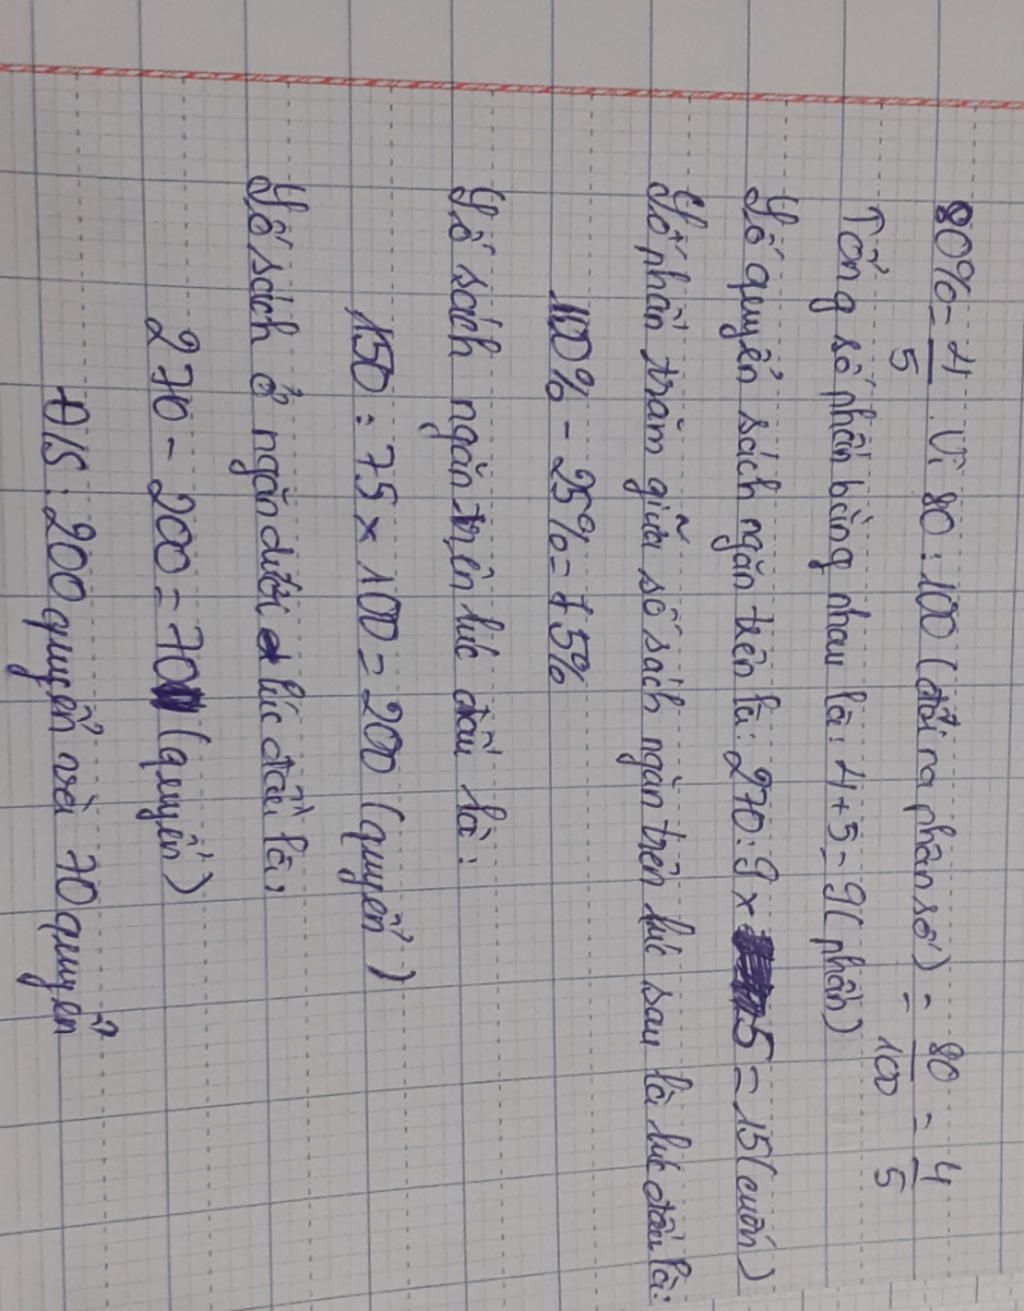 80% = 4/5 . Vì 80 : 100 (đổi ra phân số) = 80/100 = 4/5
Tổng số phần bằng nhau là: 4 + 5 = 9 (phần)
Số quyển sách ngăn trên là: 270 : 9 x 5 = 15 (cuốn)
Số phần trăm giữa số sách ngăn trên lúc sau là lúc đầu là:
100% - 25% = 75%
Số sách ngăn trên lúc đầu là:
150 : 75 x 100 = 200 (quyển)
Số sách ở ngăn dưới lúc đầu là:
270 - 200 = 70 (quyển)
Đ/S : 200 quyển và 70 quyển